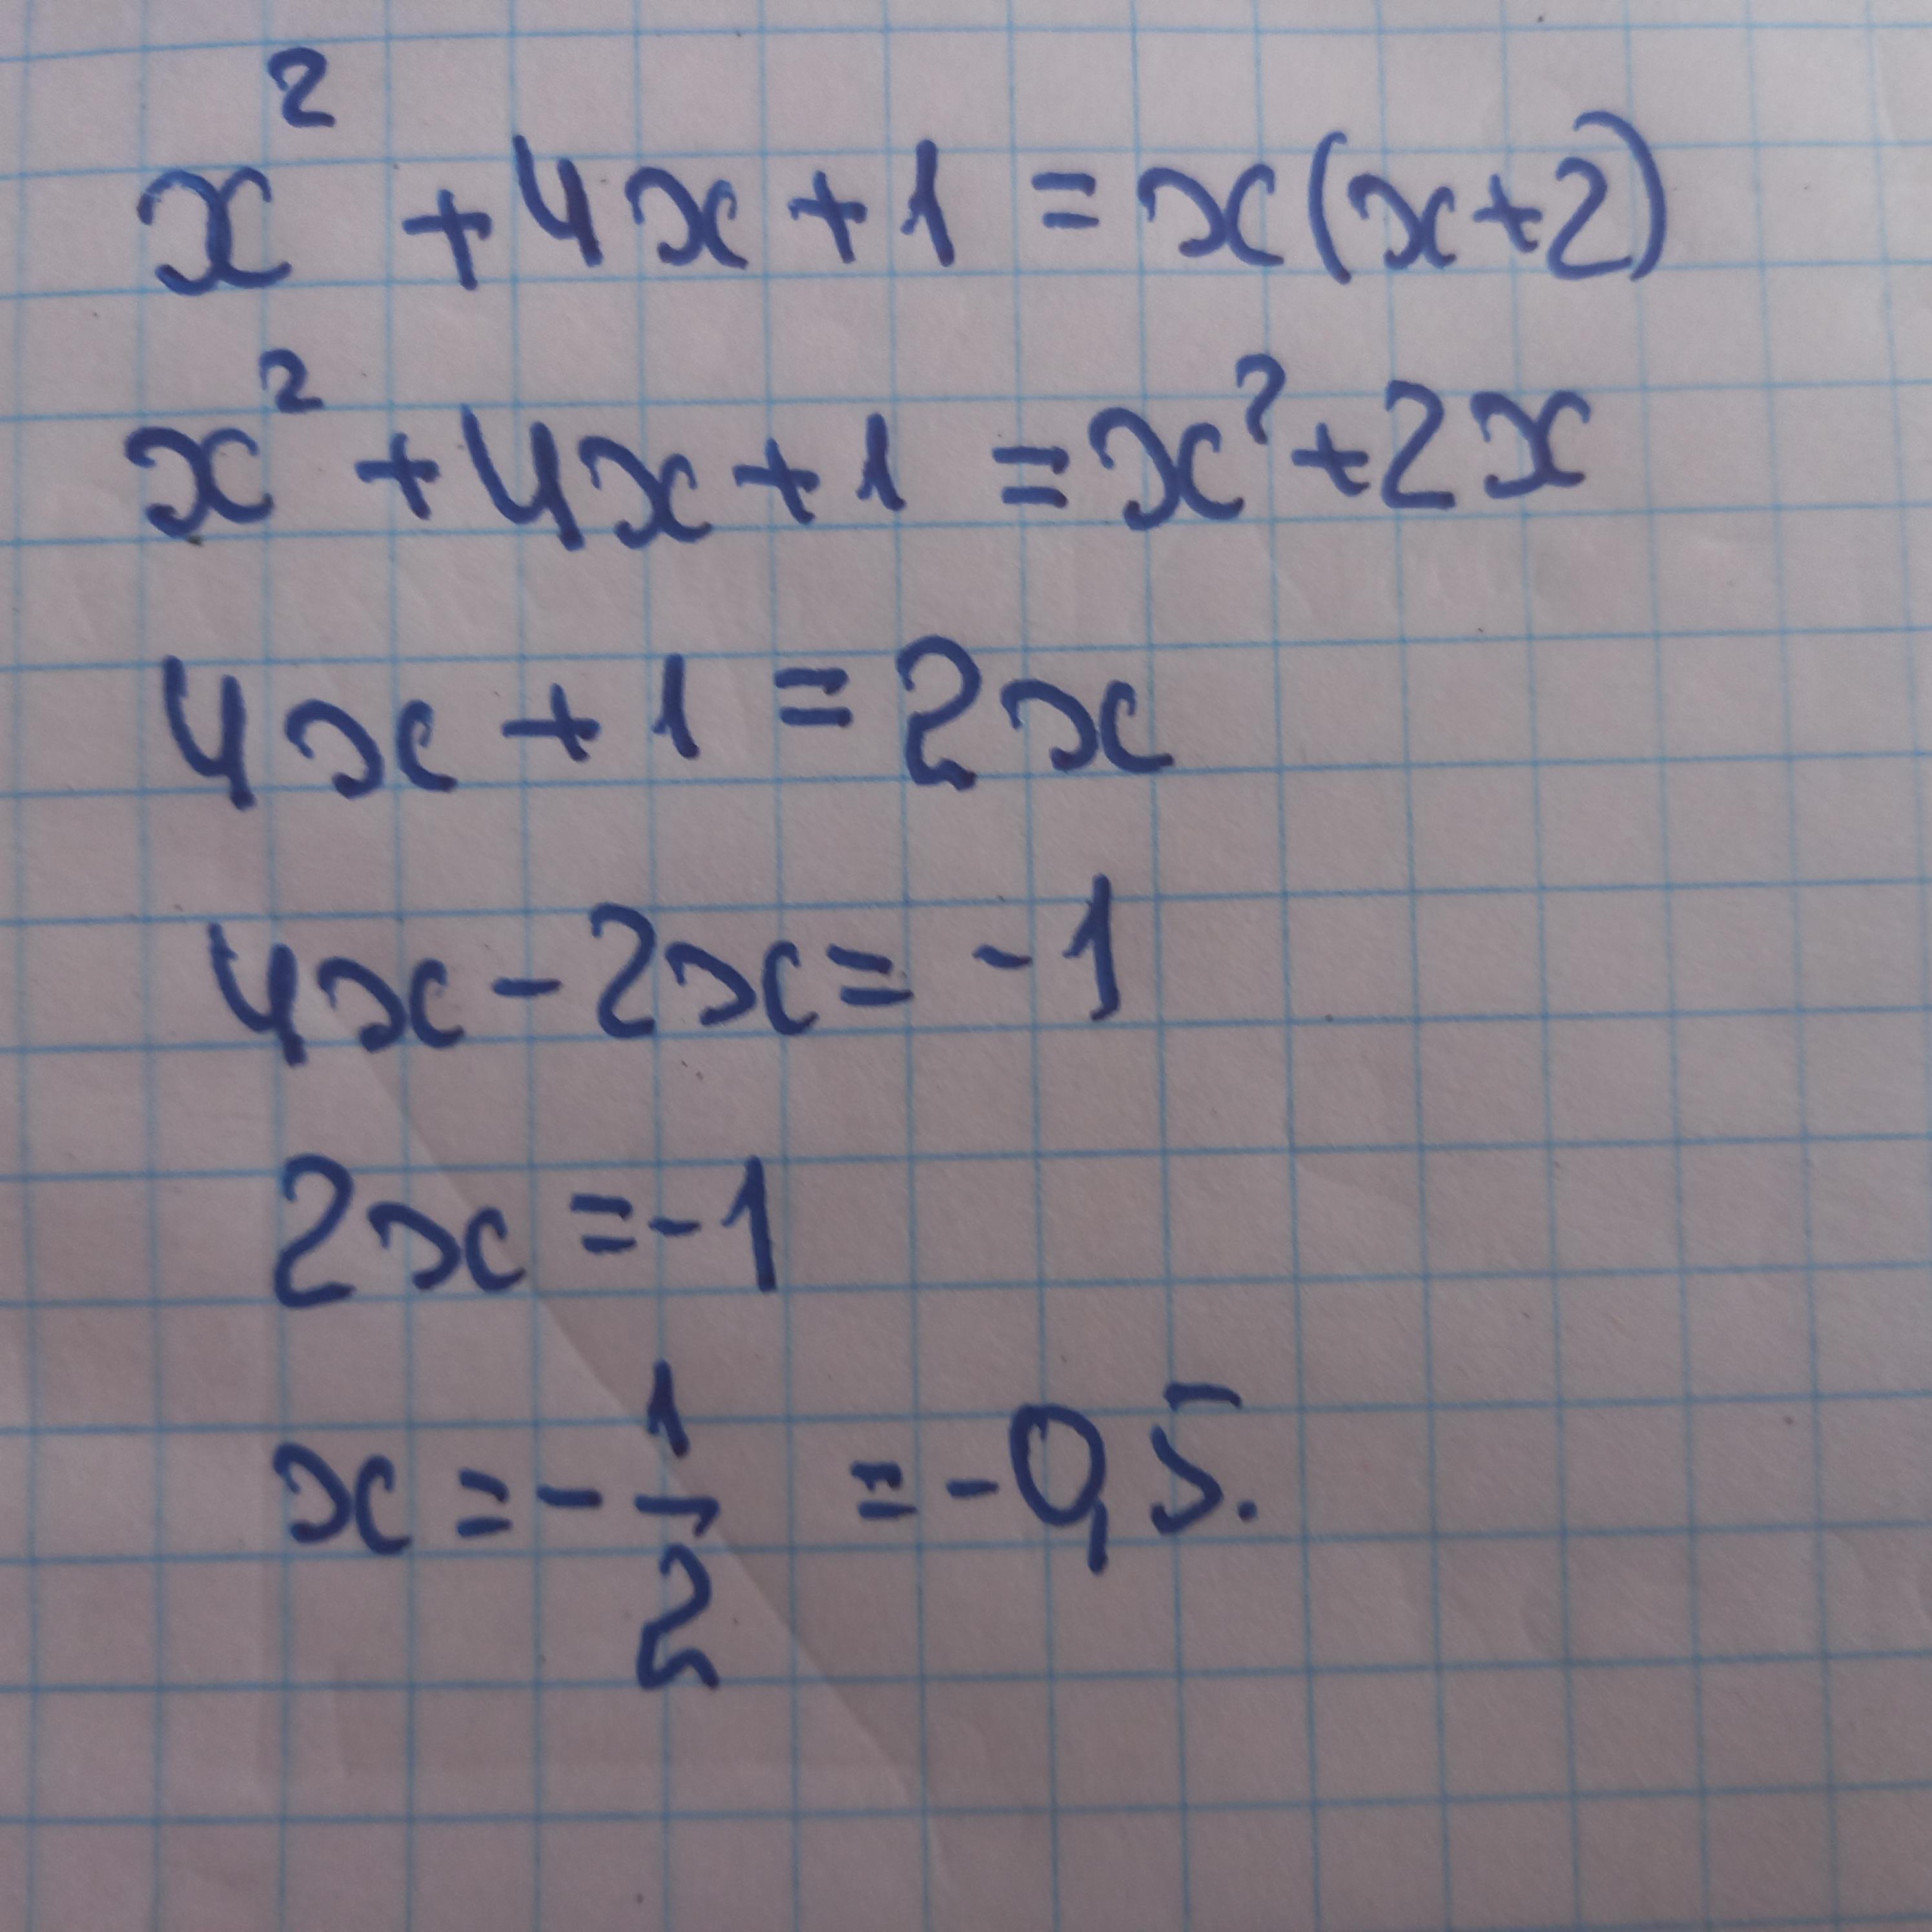 x² + 4x + 1 = x(x+2)
x² + 4x + 1 = x² + 2x
4x + 1 = 2x
4x - 2x = -1
2x = -1
x = -1/2 = -0,5.